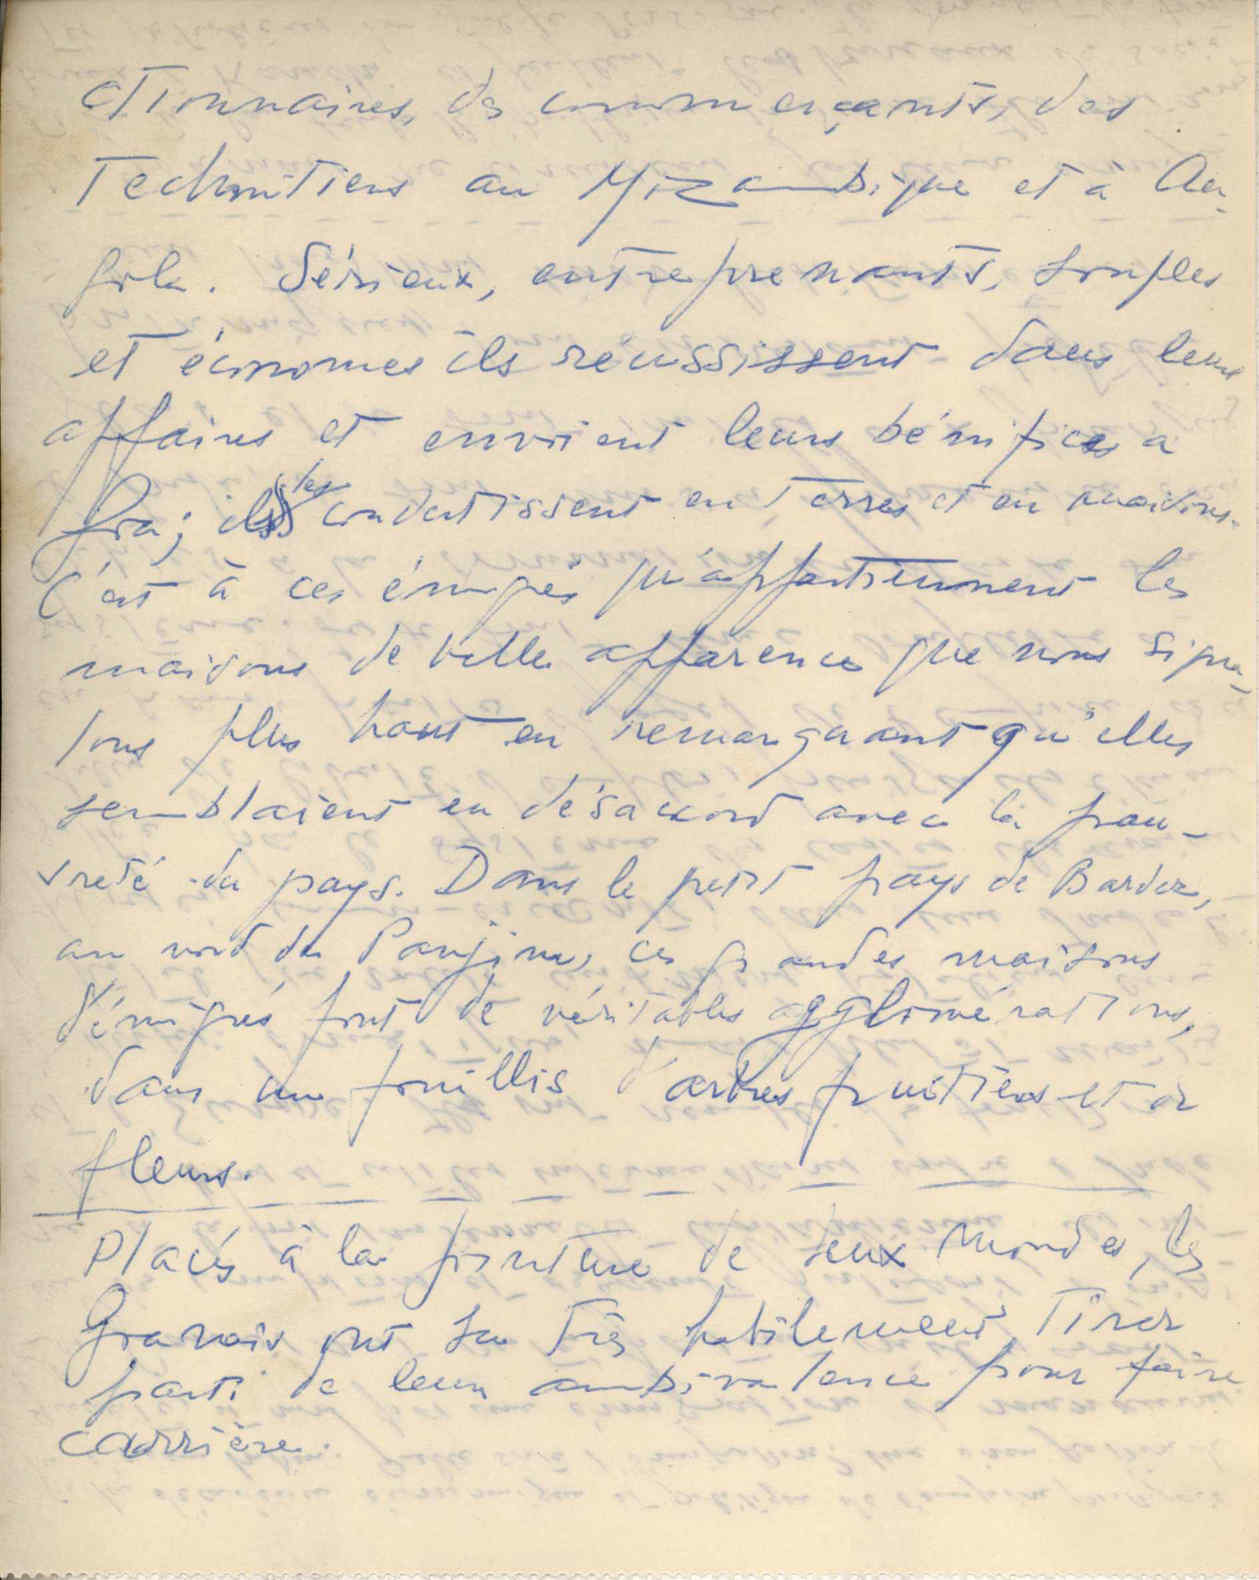 ctionnaires, des commerçants, des
Technitiens au Mozambique et à An-
gola. Sérieux, entreprenants, souples
et économes ils réussissent dans leurs
affaires et envoient leurs bénéfices a
Goa; ils les convertissent en Terres et en maisons.
C'est à ces émigrés qu'appartiennent les
maisons de belle apparence que nous signa-
lons plus haut en remarquant qu'elles
semblaient en désaccord avec la pau-
vreté du pays. Dans le petit pays de Bardez,
au nord de Panjim, ces grandes maisons
d'émigrés font de véritables agglomérations,
dans un fouillis d'arbres fruitiers et de
fleurs.
Placés à la jointure de deux Mondes, les
Goanais ont su Très habilement Tirer
parti de leur ambivalence pour faire
carrière.